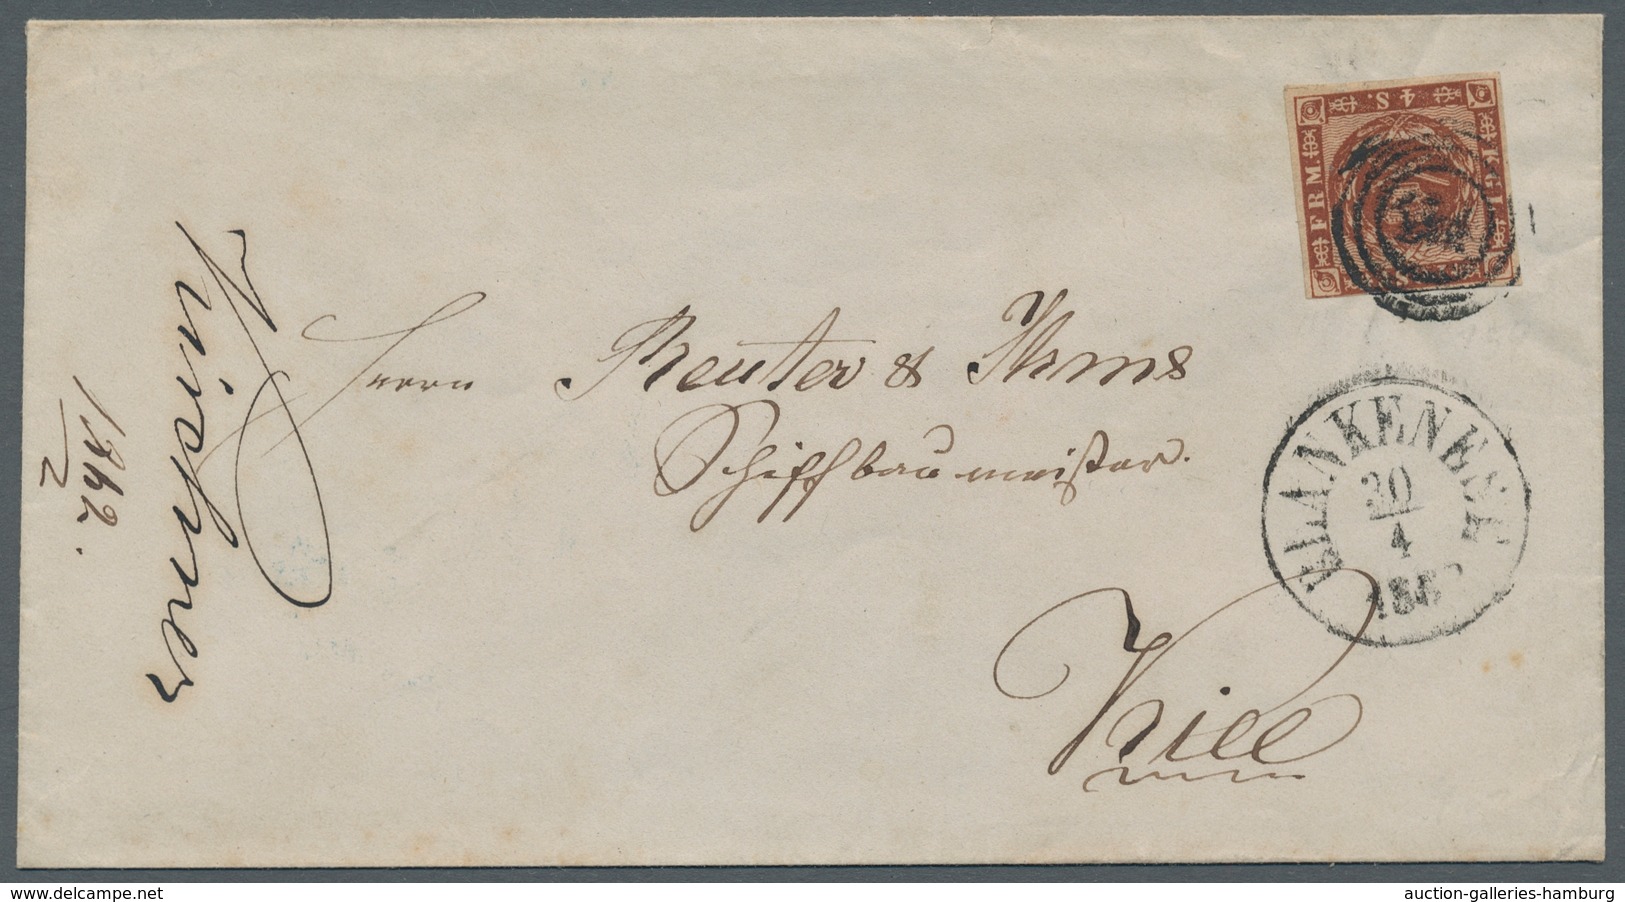 4 S.
FRM.
KGL
Herrn Reuter & Ihms
Schiffbaumeister.
Kiel
BLANKENESE
30
4
186
1862.
2
www.delcampe.net
auction-galleries-hamburg